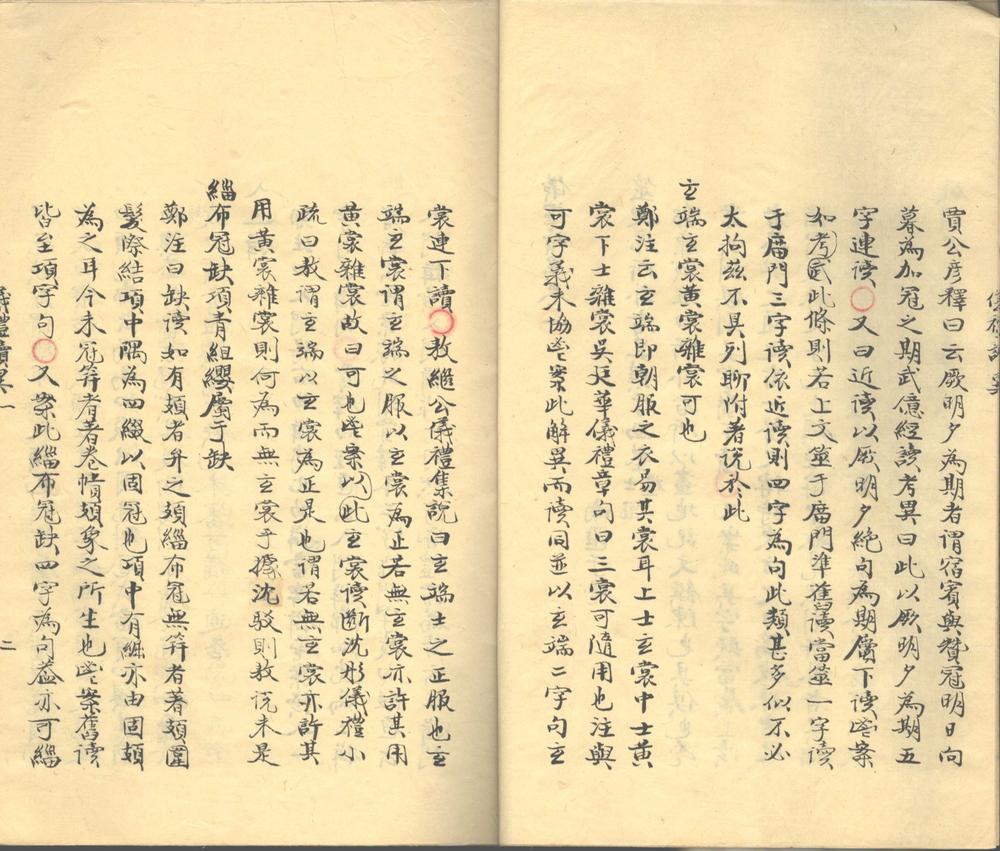 賈公彥釋曰云厥明夕為期者謂宿賓與贊冠明日向
暮為加冠之期武億經讀考異曰此以厥明夕為期五
字連讀○又曰近讀以厥明夕絕句為期屬下讀㘴案
如考武此條則若上文筮于庿門準舊讀當筮一字讀
于庿門三字讀依近讀則四字為句此類甚多似不必
太拘茲不具列聊附著說於此
玄端玄裳黃裳雜裳可也
鄭注云玄端即朝服之衣易其裳耳上士玄裳中士黃
裳下士雜裳吳廷華儀禮章句曰三裳可隨用也注與
可字義未協㘴案此解異而讀同並以玄端二字句玄
裳連下讀○敖繼公儀禮集說曰玄端士之正服也玄
端玄裳謂玄端之服以玄裳為正若無玄裳亦許其用
黃裳雜裳故曰可也㘴案以此玄裳讀斷沈彤儀禮小
疏曰敖謂玄端以玄裳為正是也謂若無玄裳亦許其
用黃裳雜裳則何為而無玄裳乎據沈駁則敖說未是
緇布冠缺項青組纓屬于缺
鄭注曰缺讀如有頍者弁之頍緇布冠無笄者著頍圍
髮際結項中隅為四綴以固冠也項中有𦀗亦由固頍
為之耳今未冠笄者著卷幘頍象之所生也㘴案舊讀
皆至項字句○又案此緇布冠缺四字為句蓋亦可緇
儀禮讀異一
二